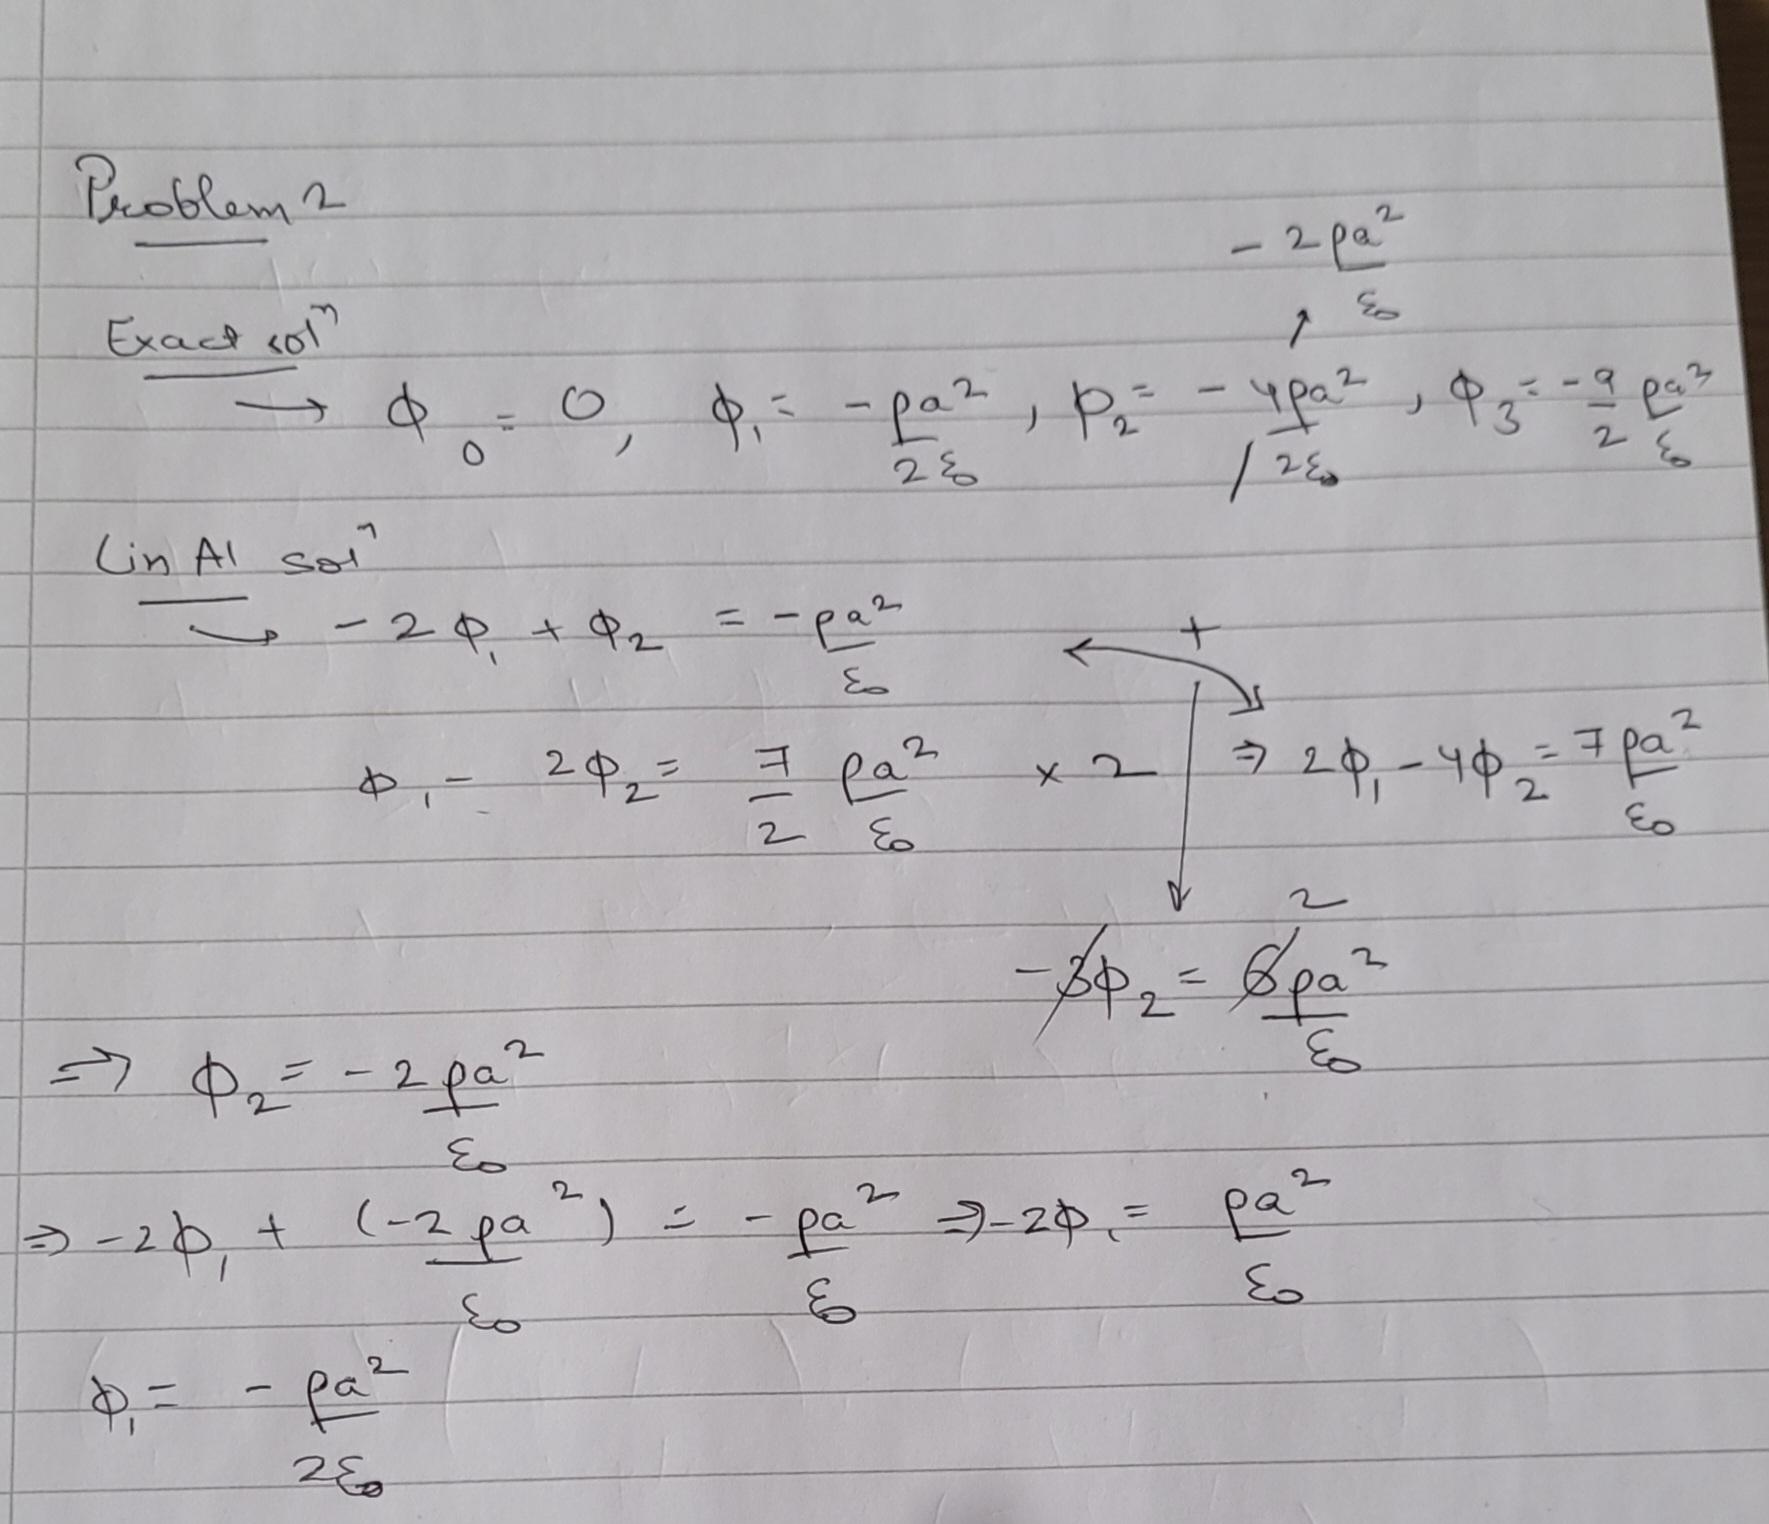 Problem 2
- 2ρa²/ε₀
Exact solⁿ
→ ϕ₀ = 0, ϕ₁ = -ρa²/2ε₀, ϕ₂ = -4ρa²/2ε₀, ϕ₃ = -9/2 ρa²/ε₀
Lin Al solⁿ
→ -2ϕ₁ + ϕ₂ = -ρa²/ε₀
+
ϕ₁ - 2ϕ₂ = 7/2 ρa²/ε₀ × 2 ⇒ 2ϕ₁ - 4ϕ₂ = 7ρa²/ε₀
2
-3ϕ₂ = 6ρa²/ε₀
⇒ ϕ₂ = -2ρa²/ε₀
⇒ -2ϕ₁ + (-2ρa²/ε₀) = -ρa²/ε₀ ⇒ -2ϕ₁ = ρa²/ε₀
ϕ₁ = -ρa²/2ε₀